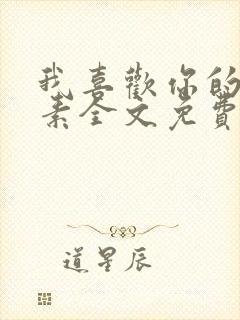 我喜歡你的
素全文免費
道星辰